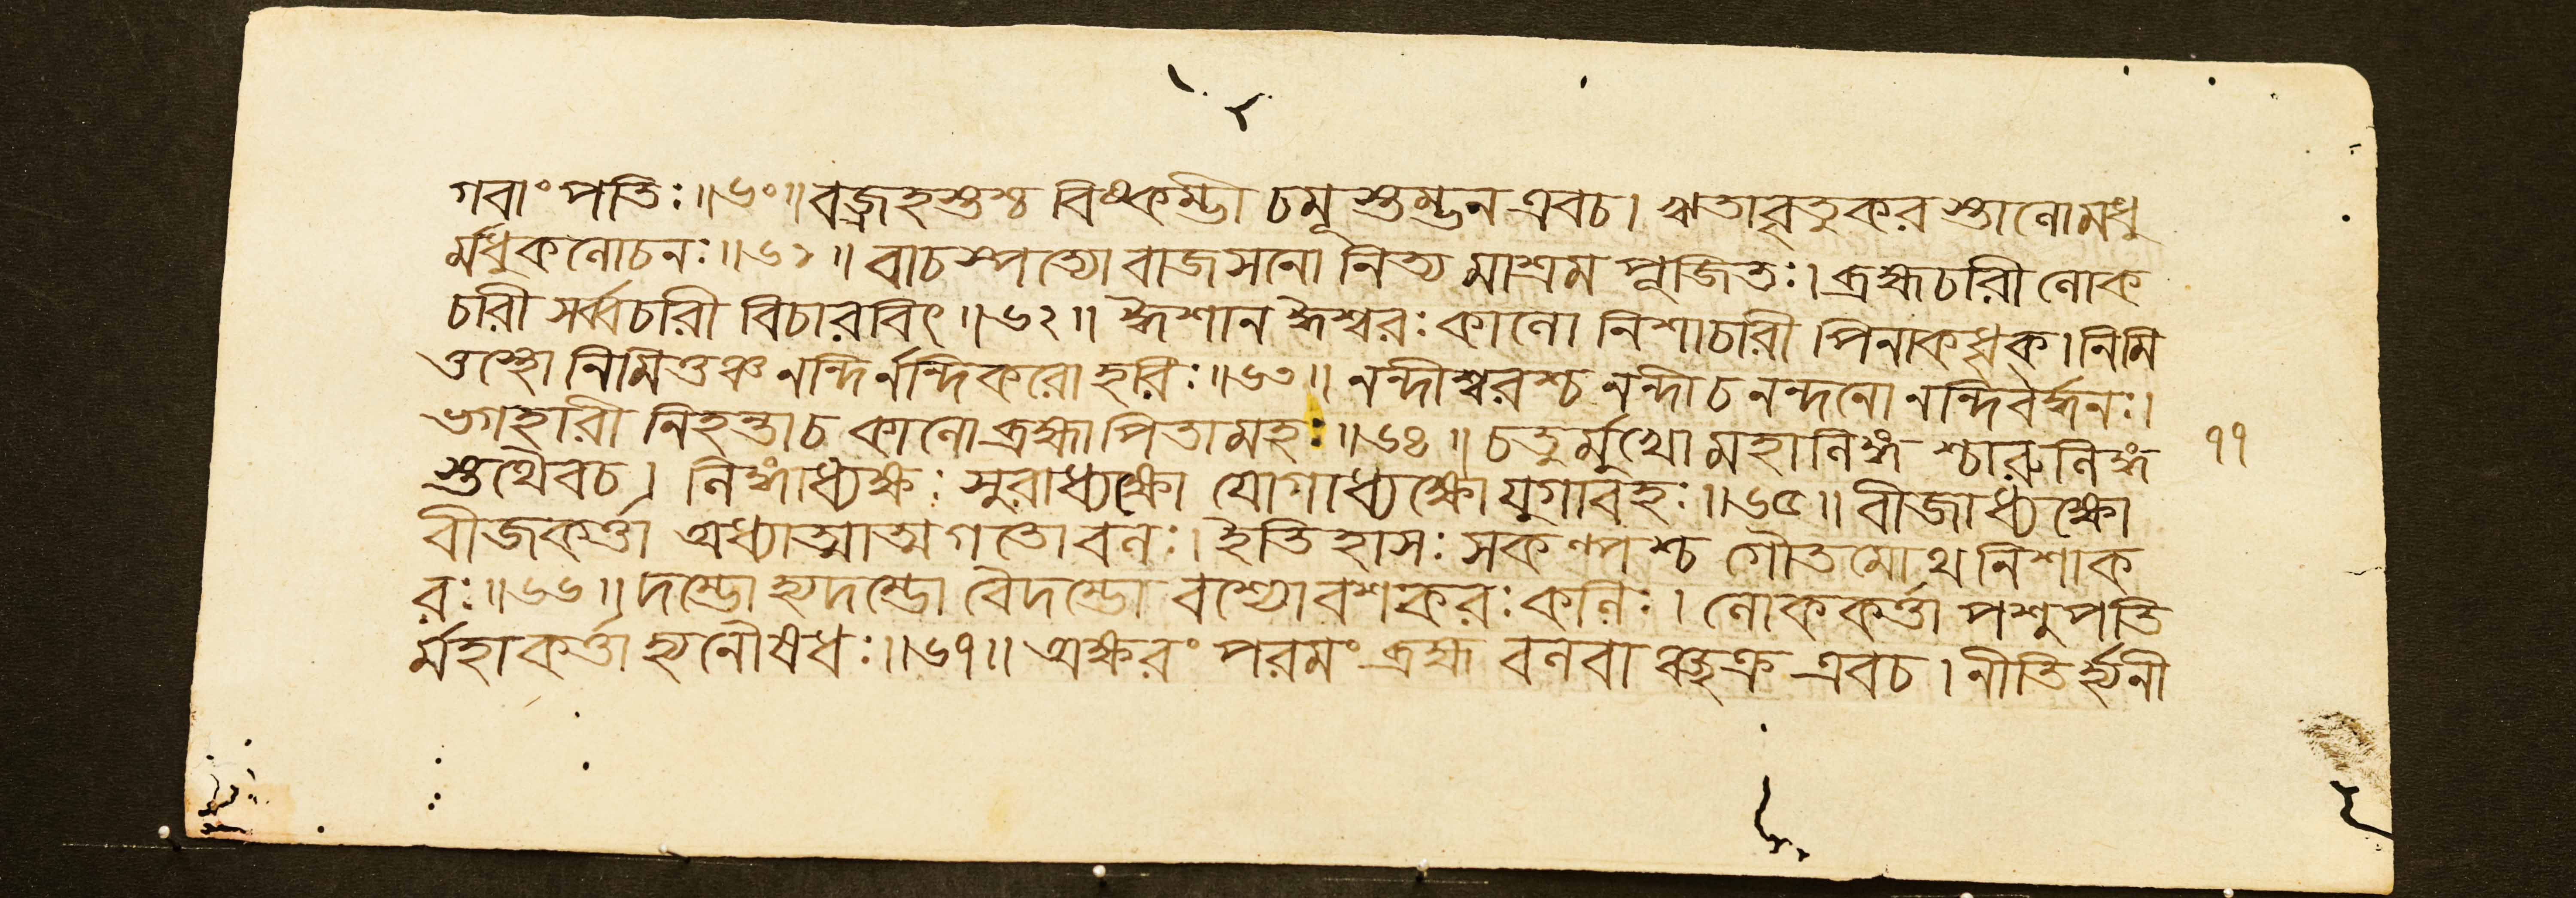 গবাং পতিঃ॥৬০॥বজ্রহস্তশ্চ বিষ্কম্ভী চমূস্তম্ভন এবচ। ঋতাবৃতুকর স্তালোমধু
র্মধুকলোচনঃ॥৬১॥ বাচস্পত্যো বাজসনো নিত্য মাশ্রম পূজিতঃ। ব্রহ্মচারী লোক
চারী সর্ব্বচারী বিচারবিৎ॥৬২॥ ঈশান ঈশ্বরঃ কালো নিশাচারী পিনাকধৃক। নিমি
ত্তস্থো নিমিত্তঞ্চ নন্দির্নন্দিকরো হরিঃ॥৬৩॥ নন্দীশ্বরশ্চ নন্দীচ নন্দনো নন্দিবর্দ্ধনঃ।
ভগহারী নিহন্তাচ কালো ব্রহ্মা পিতামহঃ॥৬৪॥ চতুর্মুখো মহালিঙ্গ শ্চারুলিঙ্গ
স্তথৈবচ। লিঙ্গাধ্যক্ষঃ সুরাধ্যক্ষো যোগাধ্যক্ষো যুগাবহঃ॥৬৫॥ বীজাধ্যক্ষো
বীজকর্ত্তা অধ্যাত্মাত্মগতো বলঃ। ইতিহাসঃ সকল্পশ্চ গৌতমোথ নিশাক
রঃ॥৬৬॥ দম্ভো হ্যদম্ভো বৈদম্ভো বশ্যোবশকরঃ কলিঃ। লোককর্ত্তা পশুপতি
র্মহাকর্ত্তা হ্যনৌষধঃ॥৬৭॥ অক্ষরং পরমং ব্রহ্ম বলবাঞ্ছক্র এবচ। নীতির্হ্যনী
৭৭